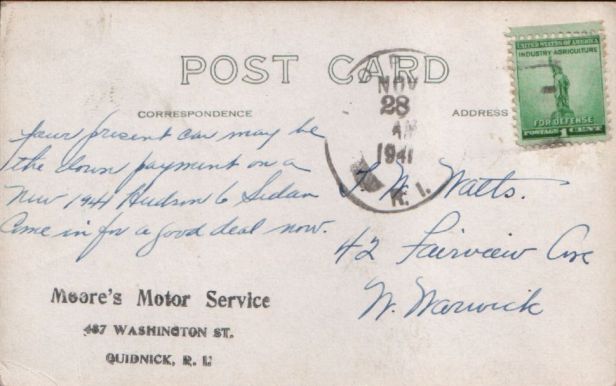 POST CARD
CORRESPONDENCE
ADDRESS
UNITED STATES OF AMERICA
INDUSTRY AGRICULTURE
FOR DEFENSE
POSTAGE 1 CENT
NOV
28
AM
1941
R. I.
your present car may be
the down payment on a
New 1941 Hudson 6 Sedan
Come in for a good deal now.
Moore's Motor Service
487 WASHINGTON ST.
QUIDNICK, R. I.
Watts.
42 Fairview Ave
W. Warwick